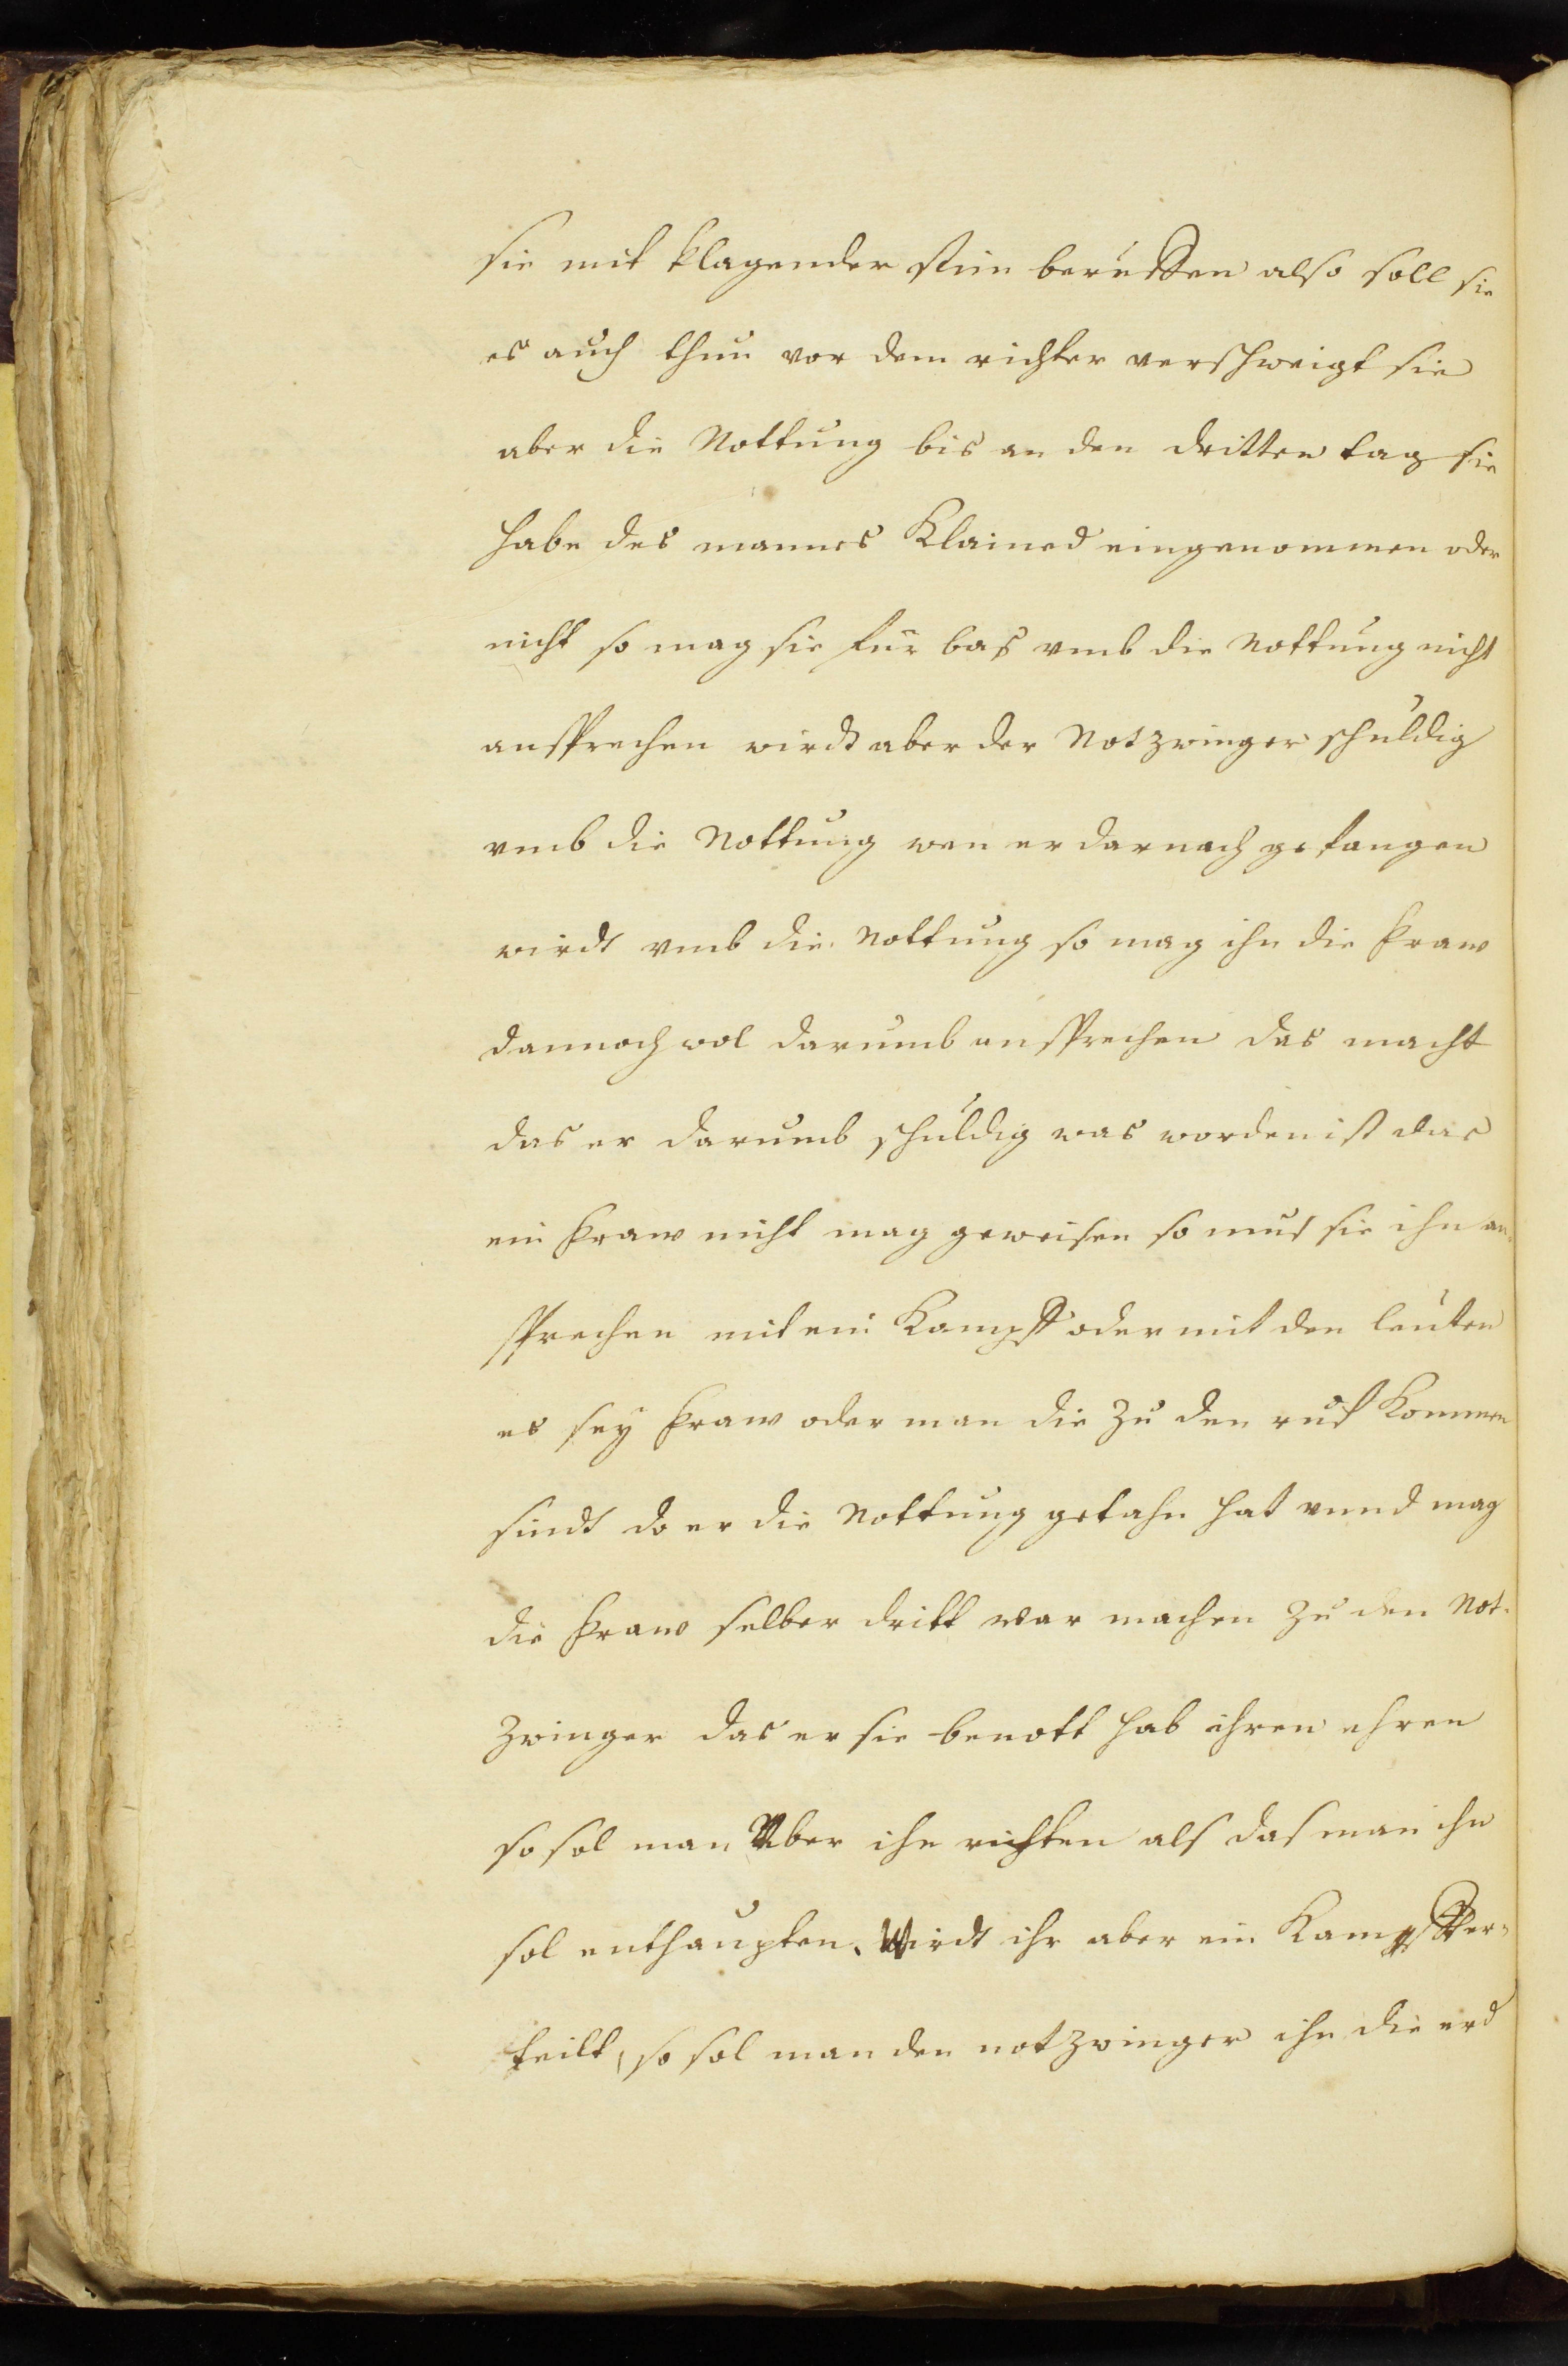 sie mit klagender stim beruffen also soll sie
es auch thun vor dem richter verschweigt sie
aber die Nottung bis an den dritten tag sie
habe des mannes Klained eingenommen oder
nicht so mag sie fur bas vmb die Nottung nicht
ansprechen wirdt aber der Notzwinger schuldig
vmb die Nottung wen er darnach gefangen
wirdt vmb die Nottung so mag ihn die fraw
dannoch wol darumb ansprechen das macht
das er darumb schuldig was worden ist das
ein fraw nicht mag geweisen so mus sie ihn an-
sprechen mit ein Kampff oder mit den leuten
es sey fraw oder man die zu den ruf kommen
sindt do er die Nottung getahn hat vnnd mag
die fraw selber dritt war machen zu den Not-
zwinger das er sie benott hab ihren ehren
so sol man Vber ihn richten als das man ihn
sol enthaupten. Wirdt ihr aber ein Kampff er-
teilt, so sol man den notzwinger ihn die erd